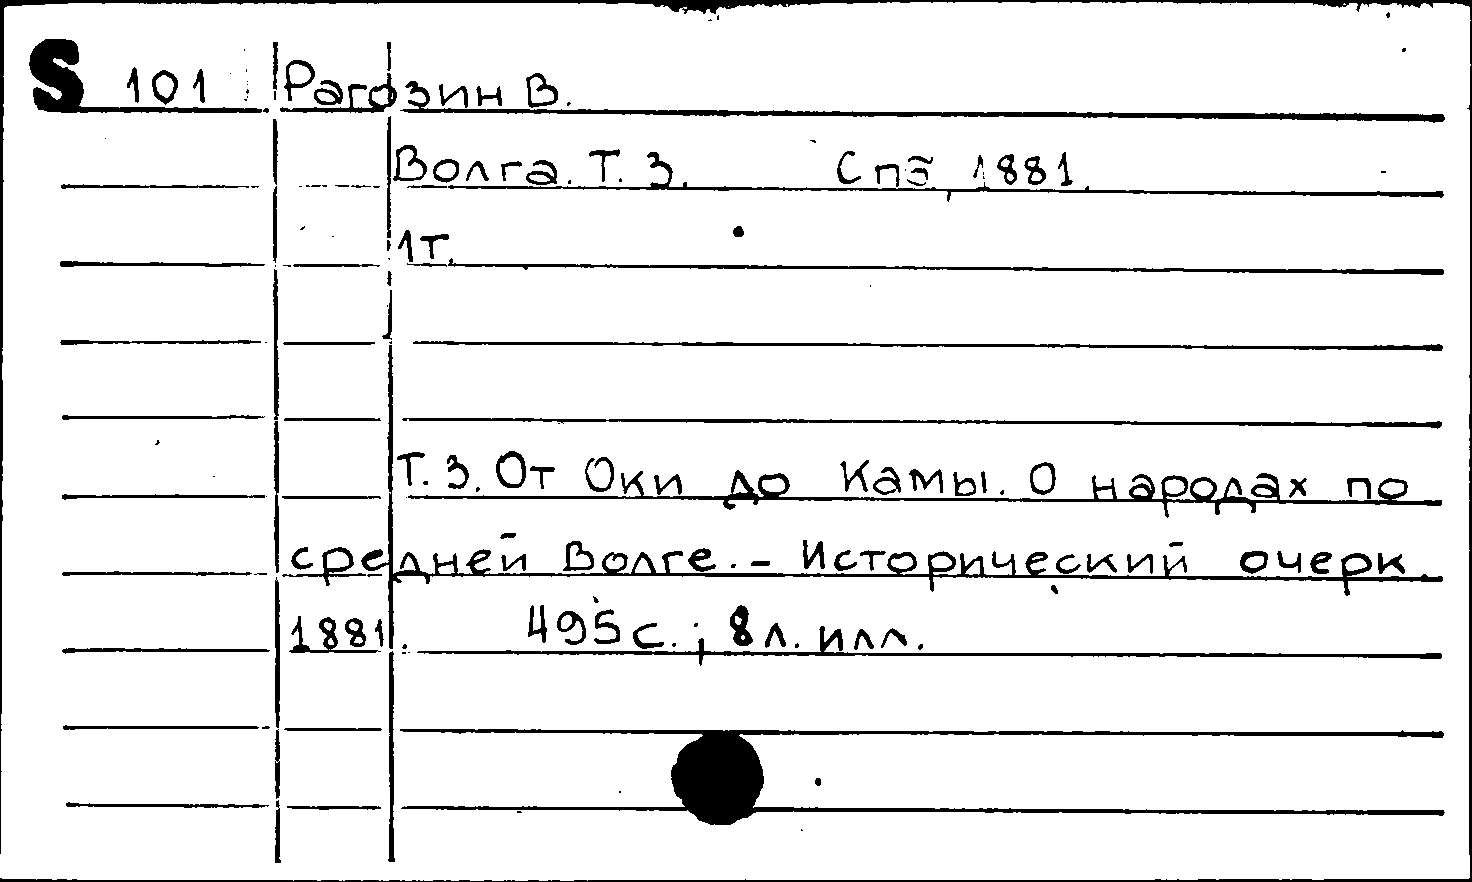 S 101 Рагозин В.
Волга. Т. 3. Спб, 1881.
1т.
Т. 3. От Оки до Камы. О народах по
средней Волге. – Исторический очерк.
1881. 495 с.; 8 л. илл.